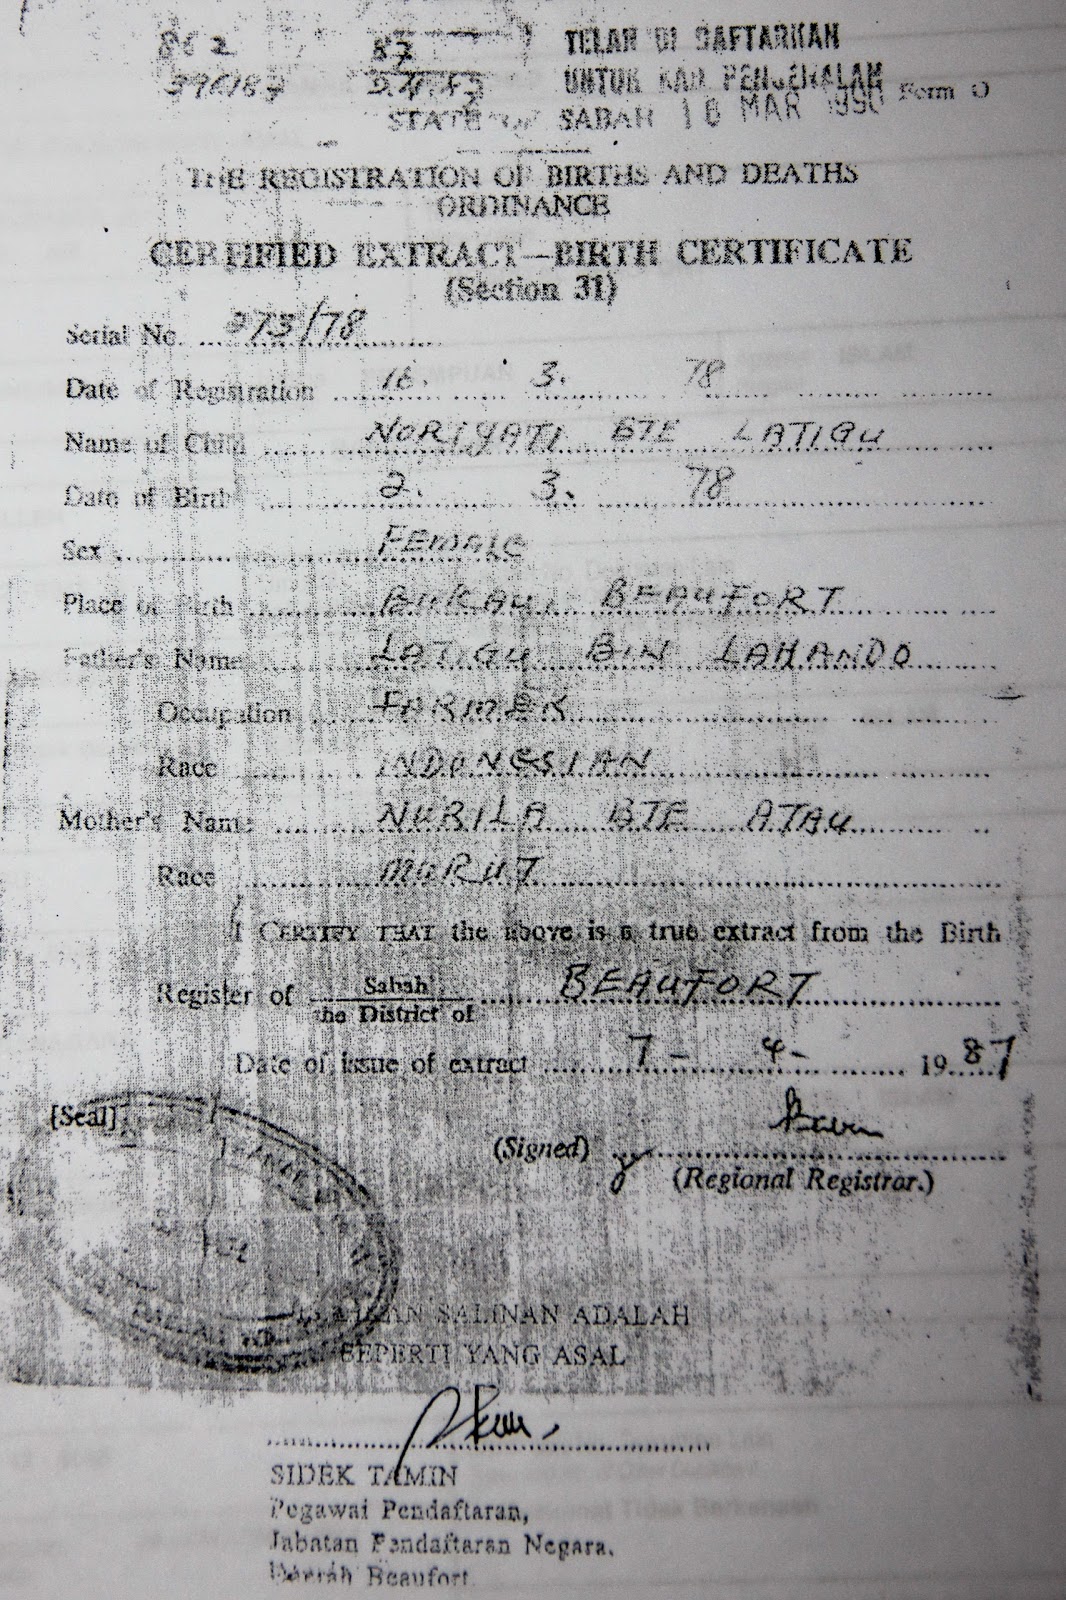 862 87 TELAH DI DAFTARKAN
UNTUK KAD PENGENALAN Form O
STATE OF SABAH 16 MAR 1990
THE REGISTRATION OF BIRTHS AND DEATHS
ORDINANCE
CERTIFIED EXTRACT—BIRTH CERTIFICATE
(Section 31)
Serial No. 273/78
Date of Registration 16. 3. 78
Name of Child NORIYATI BTE LATIGU
Date of Birth 2. 3. 78
Sex FEMALE
Place of Birth BUKAU, BEAUFORT
Father's Name LATIGU BIN LAHANDO
Occupation FARMER
Race INDONESIAN
Mother's Name NURILA BTE ATAU
Race MURUT
I CERTIFY THAT the above is a true extract from the Birth
Register of Sabah BEAUFORT
the District of
Date of issue of extract 7 - 4 - 1987
[Seal]
(Signed)
(Regional Registrar.)
SALINAN ADALAH
SEPERTI YANG ASAL
SIDEK TAMIN
Pegawai Pendaftaran,
Jabatan Pendaftaran Negara,
Daerah Beaufort